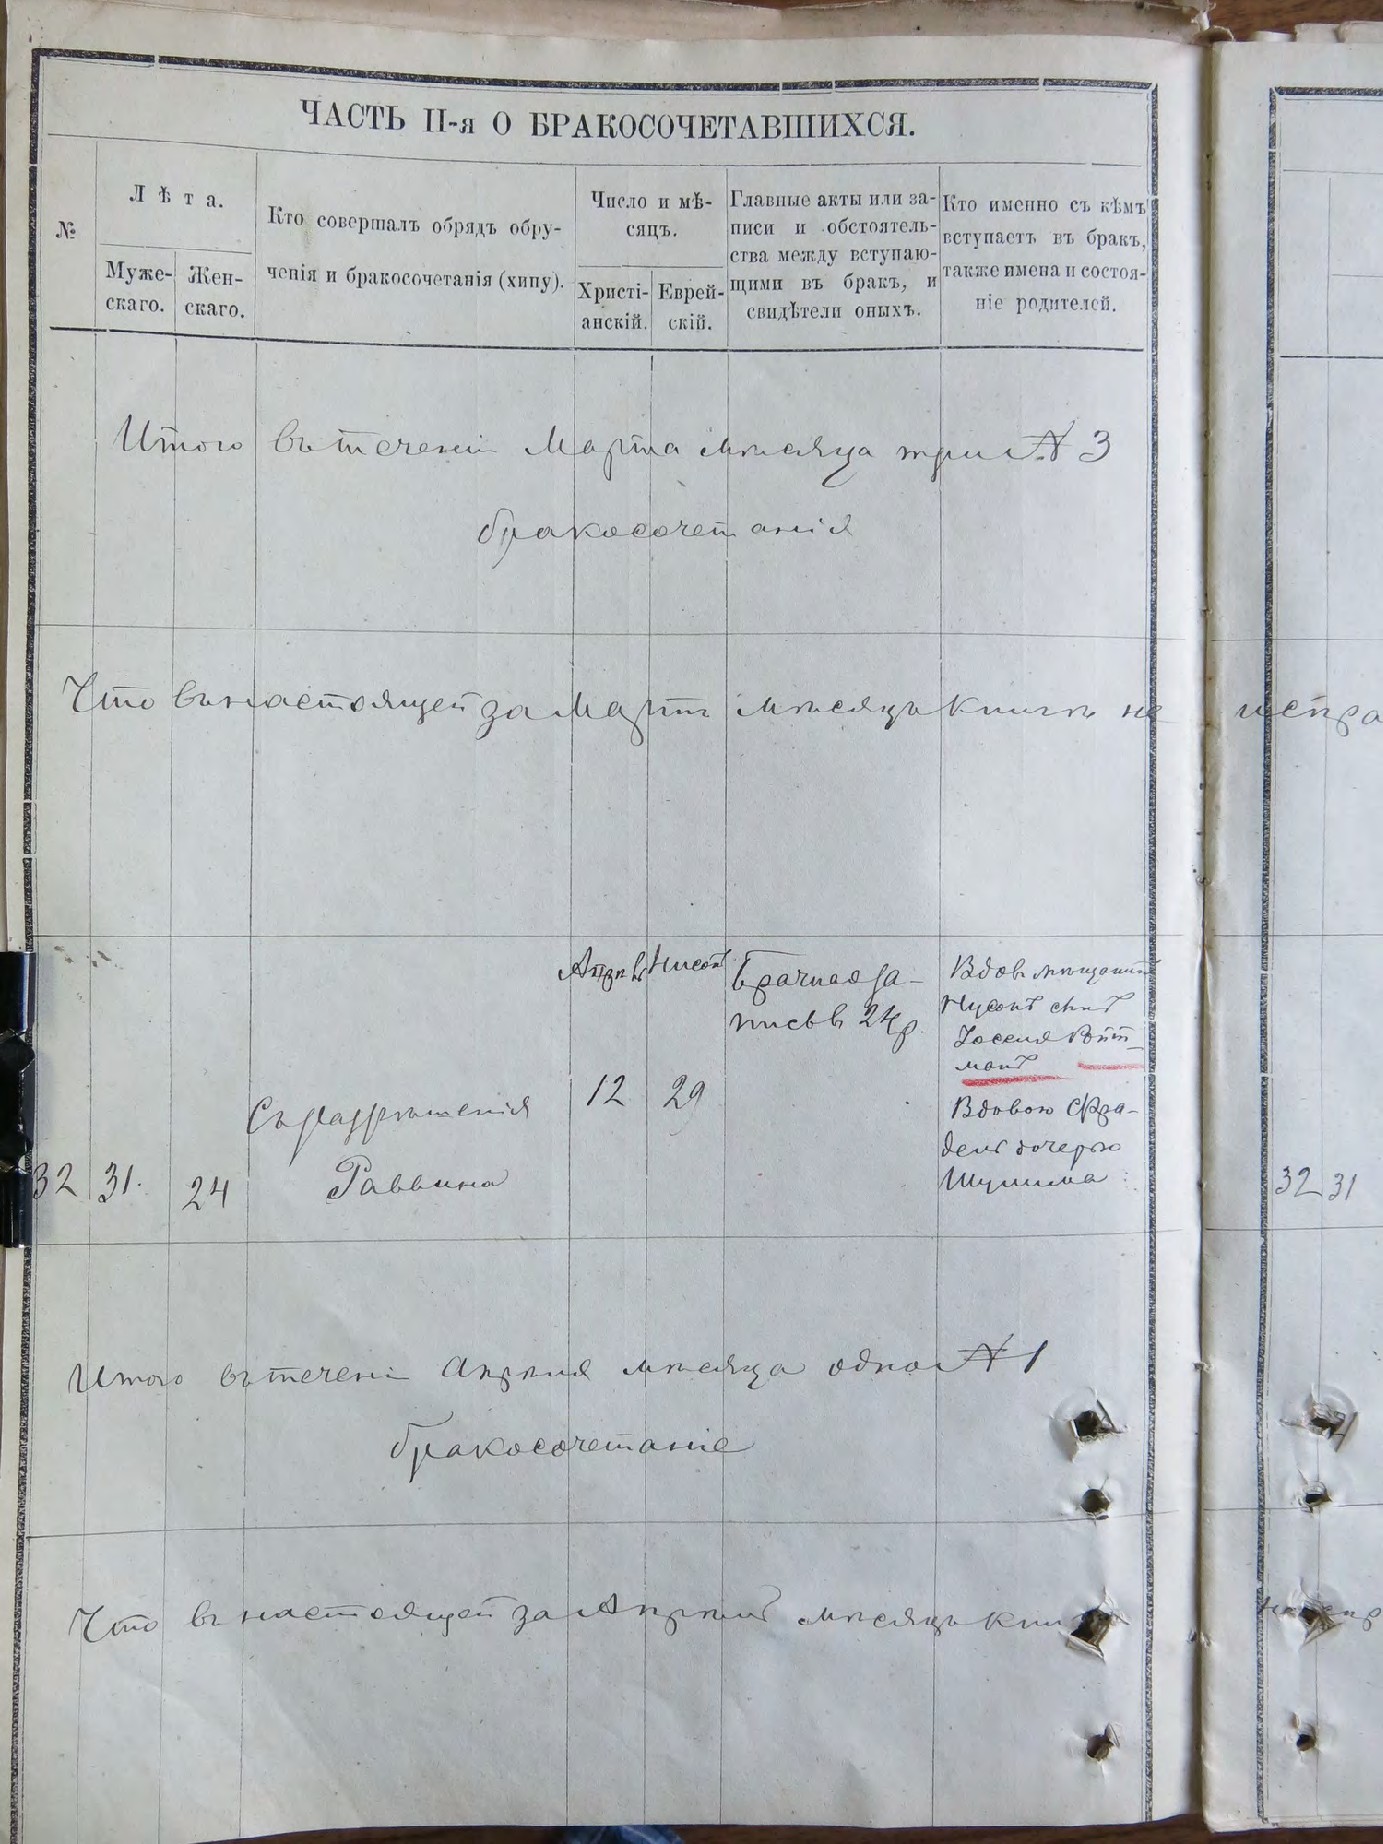 ЧАСТЬ II-я О БРАКОСОЧЕТАВШИХСЯ.
№
Лѣта.
Муже-
скаго.
Жен-
скаго.
Кто совершалъ обрядъ обру-
ченія и бракосочетанія (хипу).
Число и мѣ-
сяцъ.
Христі-
анскій.
Еврей-
скій.
Главные акты или за-
писи и обстоятель-
ства между вступаю-
щими въ бракъ, и
свидѣтели оныхъ.
Кто именно съ кѣмъ
вступаетъ въ бракъ,
также имена и состоя-
ніе родителей.
Итого въ теченіи Марта мѣсяца три № 3
бракосочетанія
Что въ настоящей за Мартъ мѣсяцъ книгѣ не испра
Нисонъ
Брачная за-
пись въ 24 р
Вдов мѣщанинъ
сынъ
Іоселя
манъ
12 29
Съ разрѣшенія
Вдовою Фра-
дель дочерью
32 31. 24 Раввина
32 31
Итого въ теченіи Апрѣля мѣсяца одно № 1
бракосочетаніе
Что въ настоящей за Апрѣль мѣсяцъ